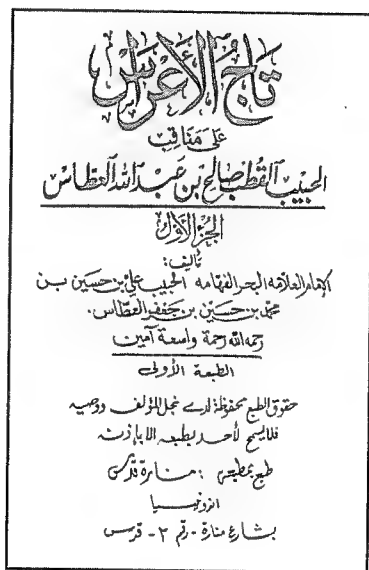 تاج الأعراس
على مناقب
الحبيب القطب صالح بن عبد الله العطاس
الجزء الأول
تأليف:
الإمام العلامة البحر الفهامه الحبيب علي بن حسين بن
محمد بن حسين بن جعفر العطاس.
رحمه الله رحمة واسعة آمين
الطبعة الأولى
حقوق الطبع محفوظة لدى نجل المؤلف ووصيه
فلا يسمح لأحد بطبعه الا باذنه
طبع بمطبعة: منارة قدس
اندونيسيا
بشارع منارة - رقم ٢ - قدس